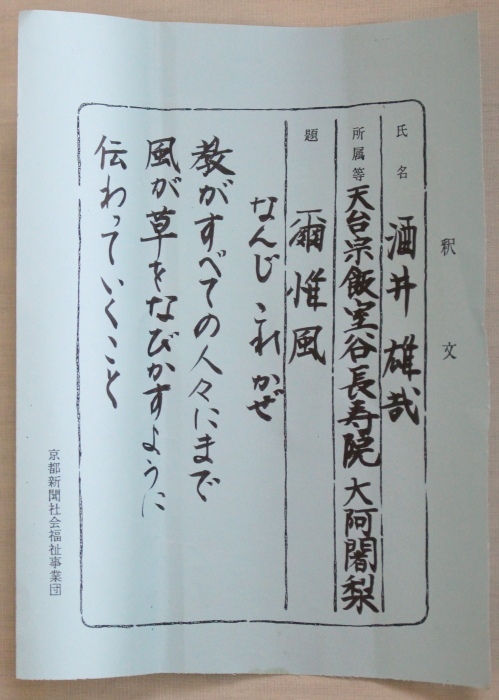 釈文
氏名 酒井雄哉
所属等 天台宗飯室谷長寿院 大阿闍梨
題 爾惟風
なんじ これ かぜ
教がすべての人々にまで
風が草をなびかすように
伝わっていくこと
京都新聞社会福祉事業団